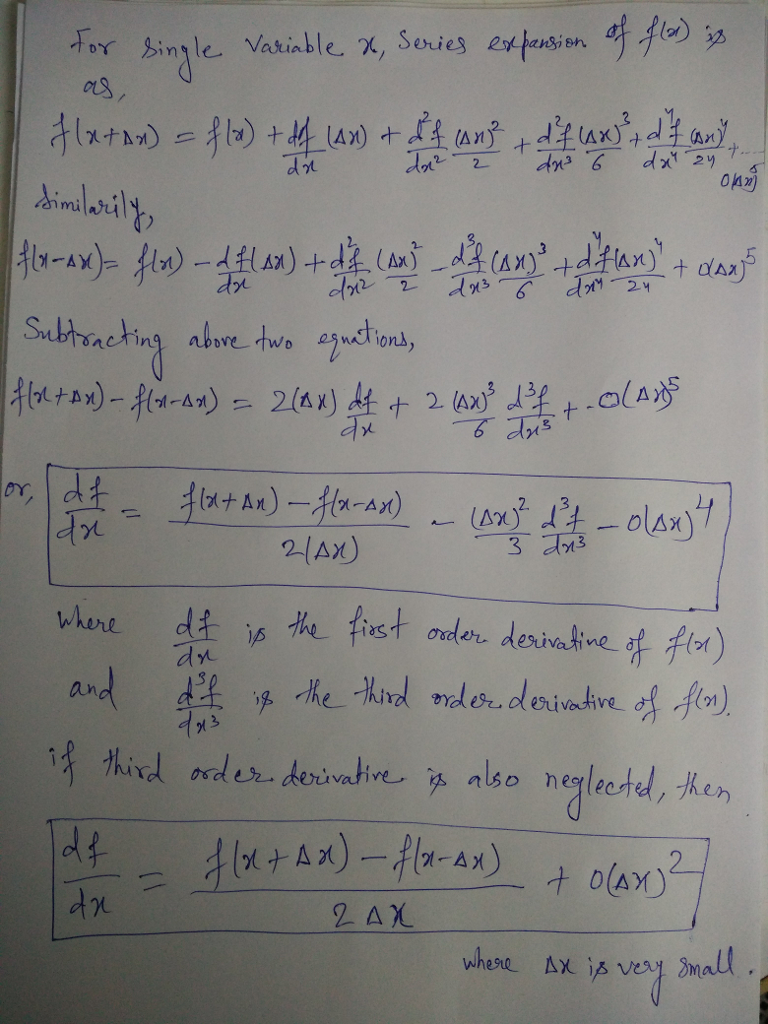 For Single Variable x, Series expansion of f(x) is
as,
f(x+Δx) = f(x) + df/dx (Δx) + d²f/dx² (Δx)²/2 + d²f/dx³ (Δx)³/6 + d⁴f/dx⁴ (Δx)⁴/24 + ..... O(Δx)⁵
Similarily,
f(x-Δx) = f(x) - df/dx (Δx) + d²f/dx² (Δx)²/2 - d³f/dx³ (Δx)³/6 + d⁴f/dx⁴ (Δx)⁴/24 + O(Δx)⁵
Subtracting above two equations,
f(x+Δx) - f(x-Δx) = 2(Δx) df/dx + 2 (Δx)³/6 d³f/dx³ + - O(Δx)⁵
or, df/dx = f(x+Δx) - f(x-Δx) / 2(Δx) - (Δx)²/3 d³f/dx³ - O(Δx)⁴
where df/dx is the first order derivative of f(x)
and d³f/dx³ is the third order derivative of f(x).
if third order derivative is also neglected, then
df/dx = f(x+Δx) - f(x-Δx) / 2Δx + O(Δx)²
where Δx is very small.